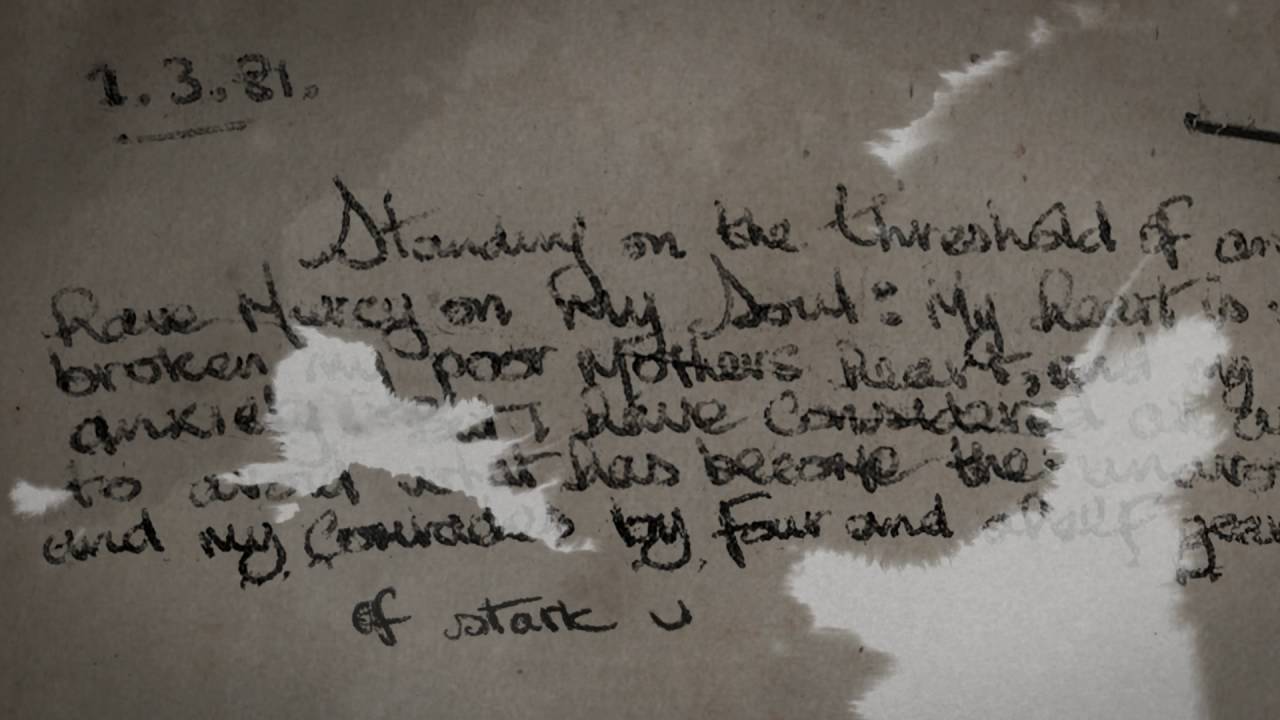 1.3.81.
Standing on the threshold of an
have Mercy on My Soul: My heart is
broken my poor Mothers heart, and my
I have considered
to what has become the
and my Comrades by four and a half year
of stark